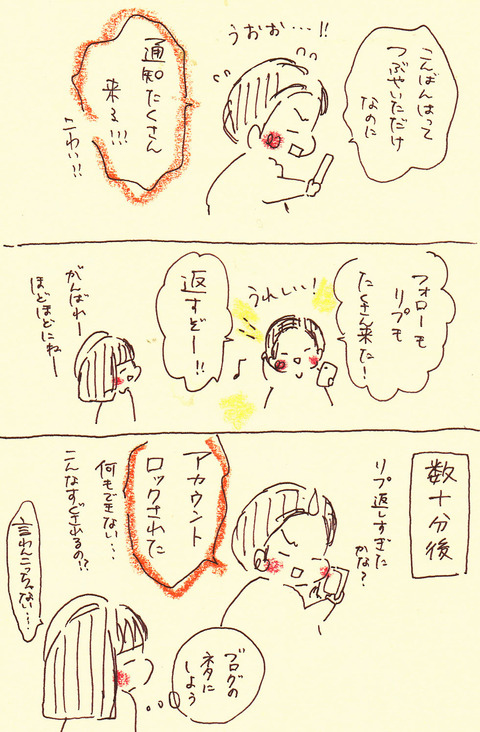 こんばんはって
つぶやいただけ
なのに
うおお…!!
通知たくさん
来る!!!
こわい!!
フォローも
リプも
たくさん来た!
うれしい!
返すぞー!!
がんばれー
ほどほどにねー
数十分後
リプ返しすぎた
かな?
アカウント
ロックされた
何もできない…
こんなすぐされるの!?
ブログの
ネタに
しよう
言わんこっちゃない…